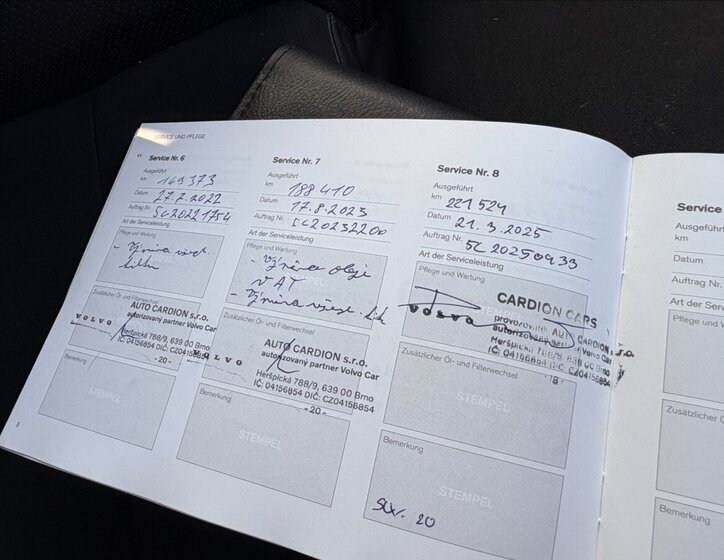 SERVICE UND PFLEGE
Service Nr. 6
Ausgeführt
km 169 373
Datum 27.7.2022
Auftrag Nr. SC20221754
Art der Serviceleistung
Pflege und Wartung
- Výměna
Zusätzlicher Öl- und Filterwechsel
VOLVO
AUTO CARDION s.r.o.
autorizovaný partner Volvo Car
Heršpická 788/9, 639 00 Brno
IČ: 04156854 DIČ: CZ04156854
- 20 -
Bemerkung
8
Service Nr. 7
Ausgeführt
km 188 410
Datum 17.8.2023
Auftrag Nr. SC20232200
Art der Serviceleistung
Pflege und Wartung
- Výměna oleje
v AT
- Výměna
Zusätzlicher Öl- und Filterwechsel
VOLVO
AUTO CARDION s.r.o.
autorizovaný partner Volvo Car
Heršpická 788/9, 639 00 Brno
IČ: 04156854 DIČ: CZ04156854
- 20 -
Bemerkung
STEMPEL
Service Nr. 8
Ausgeführt
km 221 524
Datum 21.3.2025
Auftrag Nr. SC20250933
Art der Serviceleistung
Pflege und Wartung
VOLVO
CARDION CARS
provozovatel AUTO CARDION s.r.o.
autorizovaný partner Volvo Car
Heršpická 788/9, 639 00 Brno
IČ: 04156854 DIČ: CZ04156854
- 18 -
Zusätzlicher Öl- und Filterwechsel
STEMPEL
Bemerkung
STEMPEL
20
Service
Ausgeführt
km
Datum
Auftrag Nr.
Art der Serv
Pflege und
Zusätzlicher
Bemerkung